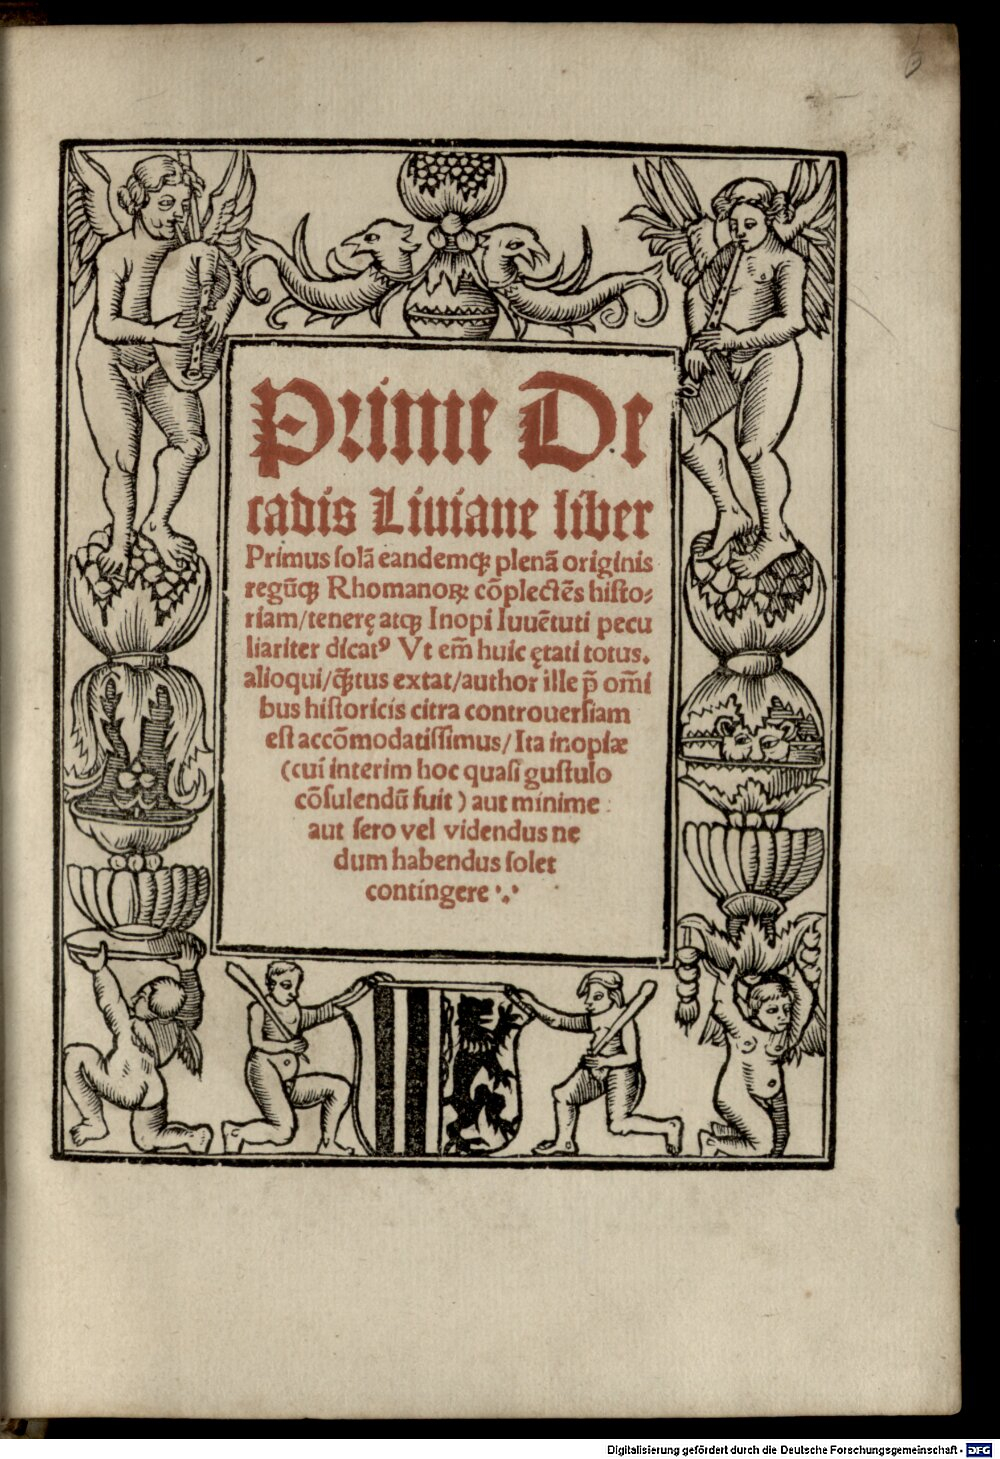 Prime De
cadis Liuiane liber
Primus solā eandemq́ꝫ plenā originis
regūq́ꝫ Rhomanoꝝ cōplectēs histo⸗
riam/tenerę atqꝫ Inopi Iuuētuti pecu
liariter dicatꝰ Vt em̄ huic ętati totus.
alioqui/q̄ꝫtus extat/author ille p̄ om̄i
bus historicis citra controuersiam
est accōmodatissimus/ Ita inopiæ
(cui interim hoc quasi gustulo
cōsulendū fuit) aut minime
aut sero vel videndus ne
dum habendus solet
contingere
Digitalisierung gefördert durch die Deutsche Forschungsgemeinschaft - DFG